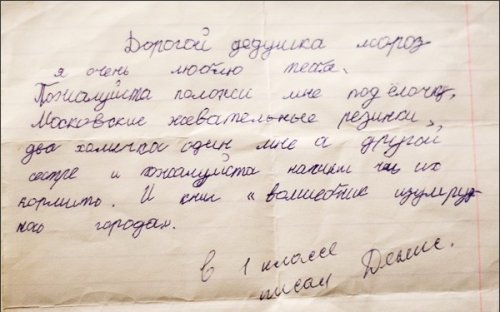 Дорогой дедушка мороз
я очень люблю тебя.
Пожалуйста положи мне под ёлочку,
Московские жевательные резинки,
два хомичка один мне а другой
сестре и пожалуйста напиши чем их
кормить. И книг "волшебник изумруд
ного города".
В 1 классе
писал Денис.